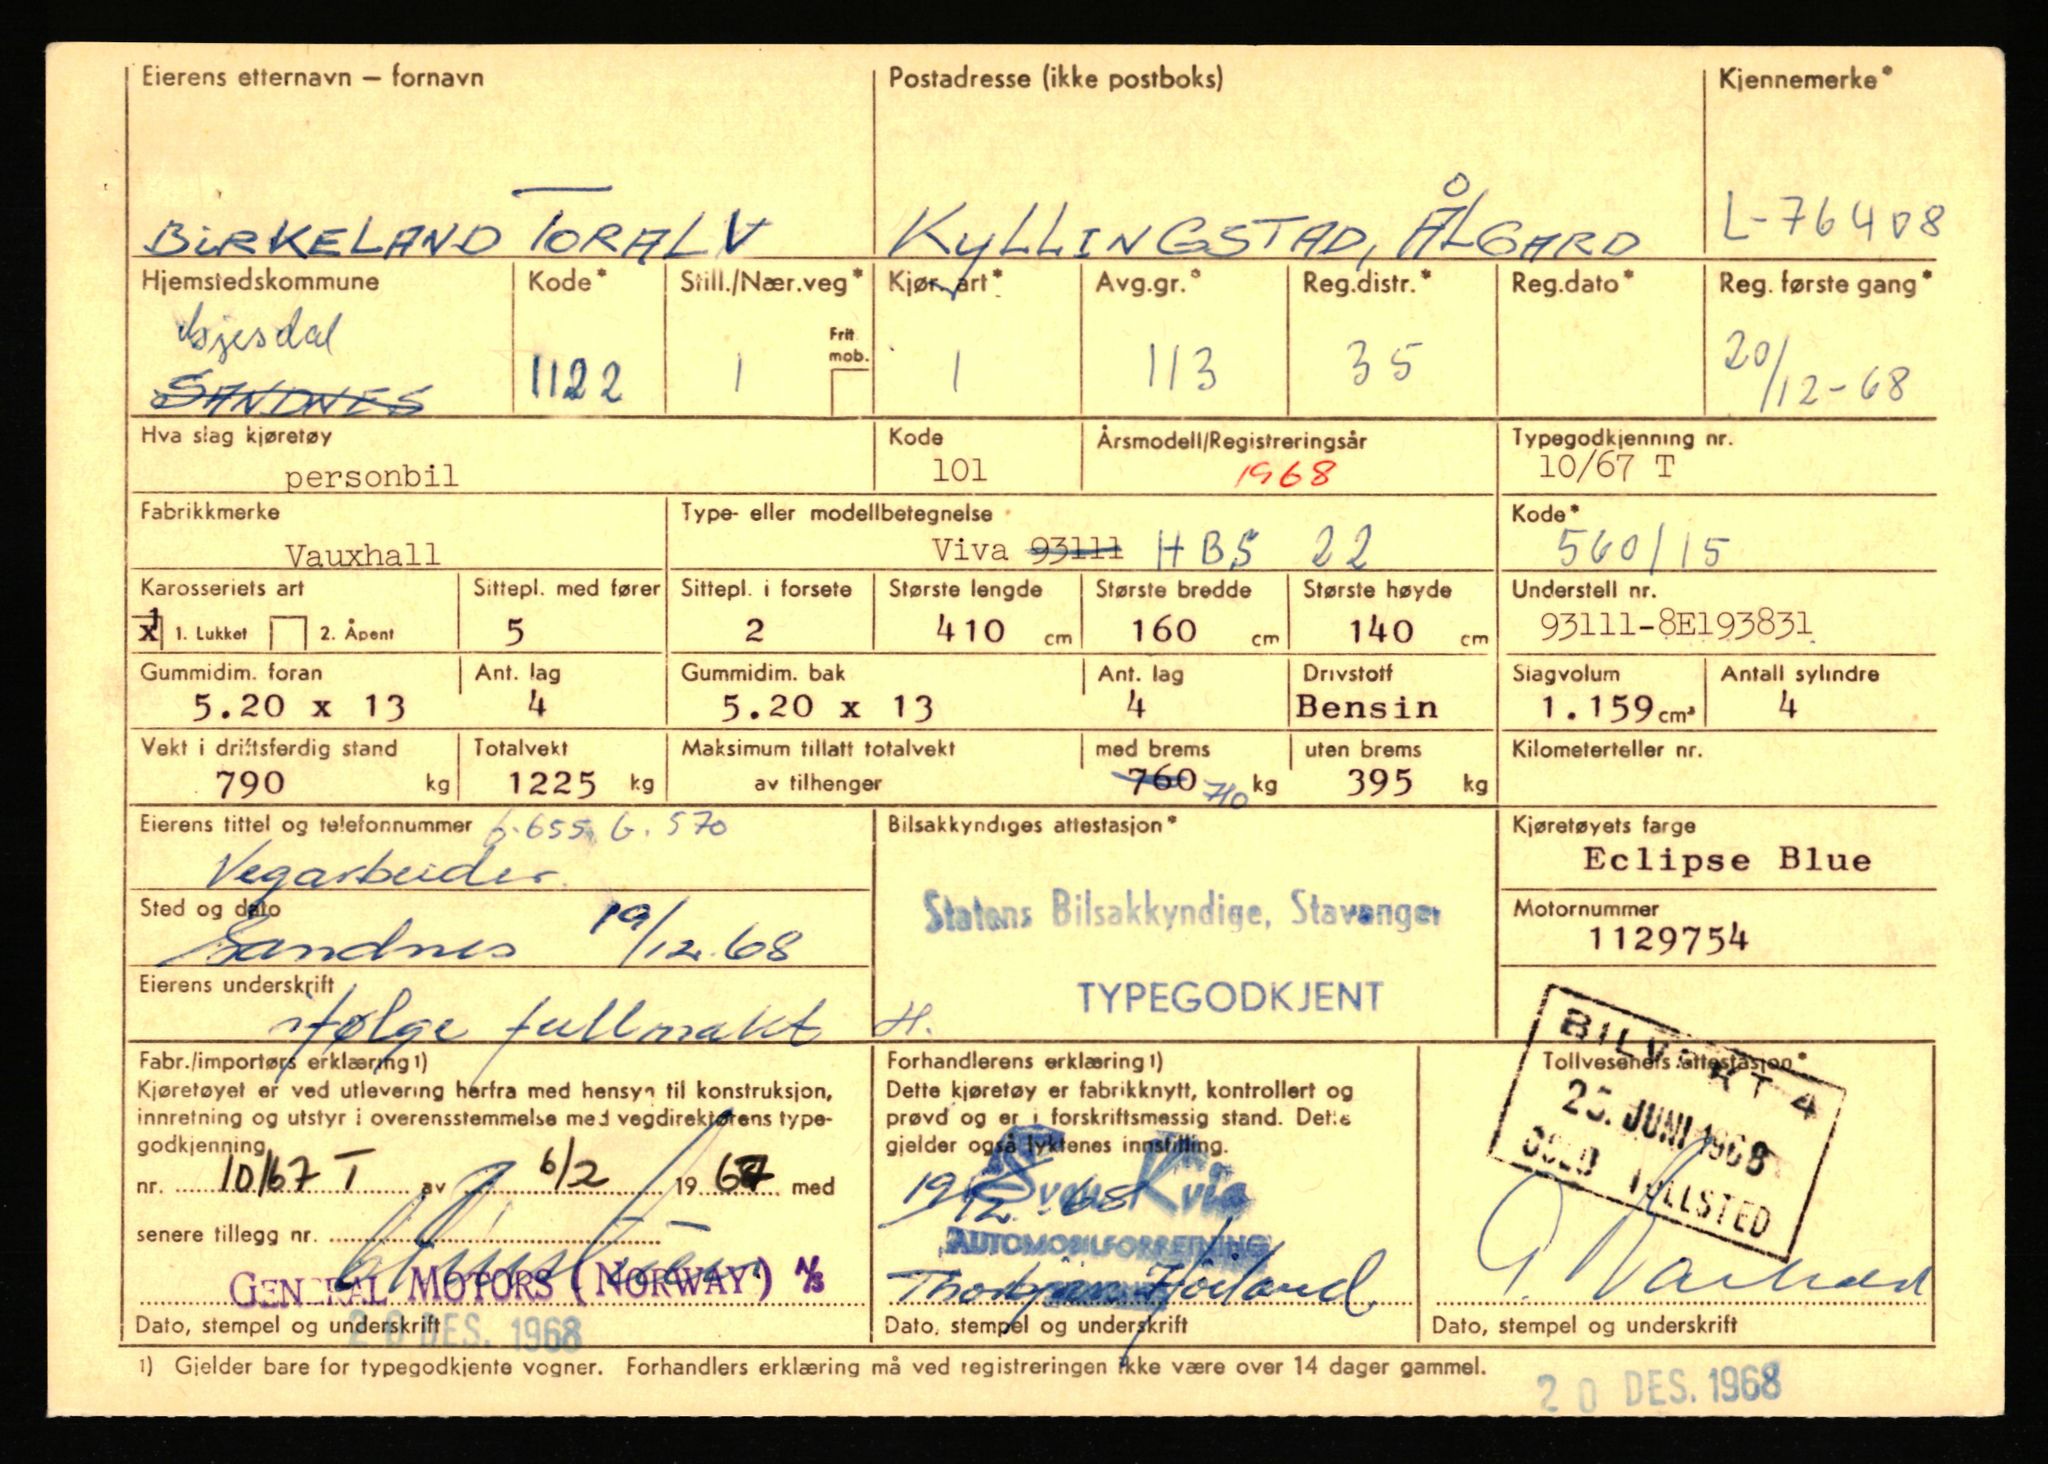 Eierens etternavn — fornavn
Postadresse (ikke postboks)
Kjennemerke*
BIRKELAND TORALV
KYLLINGSTAD, ÅLGARD
L-76408
Hjemstedskommune
Kode*
Still./Nær.veg*
Kjør. art*
Avg.gr.*
Reg.distr.*
Reg.dato*
Reg. første gang*
Gjesdal
SANDNES
1122
1
Fritt mob.
1
113
35
20/12-68
Hva slag kjøretøy
Kode
Årsmodell/Registreringsår
Typegodkjenning nr.
personbil
101
1968
10/67 T
Fabrikkmerke
Type- eller modellbetegnelse
Kode*
Vauxhall
Viva 93111 HBS 22
560/15
Karosseriets art
Sittepl. med fører
Sittepl. i forsete
Største lengde
Største bredde
Største høyde
Understell nr.
x 1. Lukket 2. Åpent
5
2
410 cm
160 cm
140 cm
93111-8E193831
Gummidim. foran
Ant. lag
Gummidim. bak
Ant. lag
Drivstoff
Slagvolum
Antall sylindre
5.20 x 13
4
5.20 x 13
4
Bensin
1.159 cm³
4
Vekt i driftsferdig stand
Totalvekt
Maksimum tillatt totalvekt
med brems
uten brems
Kilometerteller nr.
790 kg
1225 kg
av tilhenger
760 710 kg
395 kg
Eierens tittel og telefonnummer 6.655 6.570
Bilsakkyndiges attestasjon*
Kjøretøyets farge
Vegarbeider
Eclipse Blue
Sted og dato
Statens Bilsakkyndige, Stavanger
Motornummer
Sandnes 19/12.68
1129754
Eierens underskrift
TYPEGODKJENT
ifølge fullmakt
H.
Fabr./importørs erklæring 1)
Forhandlerens erklæring 1)
Tollvesenets attestasjon*
Kjøretøyet er ved utlevering herfra med hensyn til konstruksjon,
innretning og utstyr i overensstemmelse med vegdirektørens type-
godkjenning
nr. 10/67 T av 6/2 1967 med
senere tillegg nr.
GENERAL MOTORS (NORWAY) A/S
20 DES. 1968
Dato, stempel og underskrift
Dette kjøretøy er fabrikknytt, kontrollert og
prøvd og er i forskriftsmessig stand. Dette
gjelder også lyktenes innstilling.
19/12.-68
Sven Kvia
AUTOMOBILFORRETNING
Thorbjørn Höiland
Dato, stempel og underskrift
BILVEKT 4
25. JUNI 1968
OSLO TOLLSTED
Dato, stempel og underskrift
1) Gjelder bare for typegodkjente vogner. Forhandlers erklæring må ved registreringen ikke være over 14 dager gammel.
20 DES. 1968